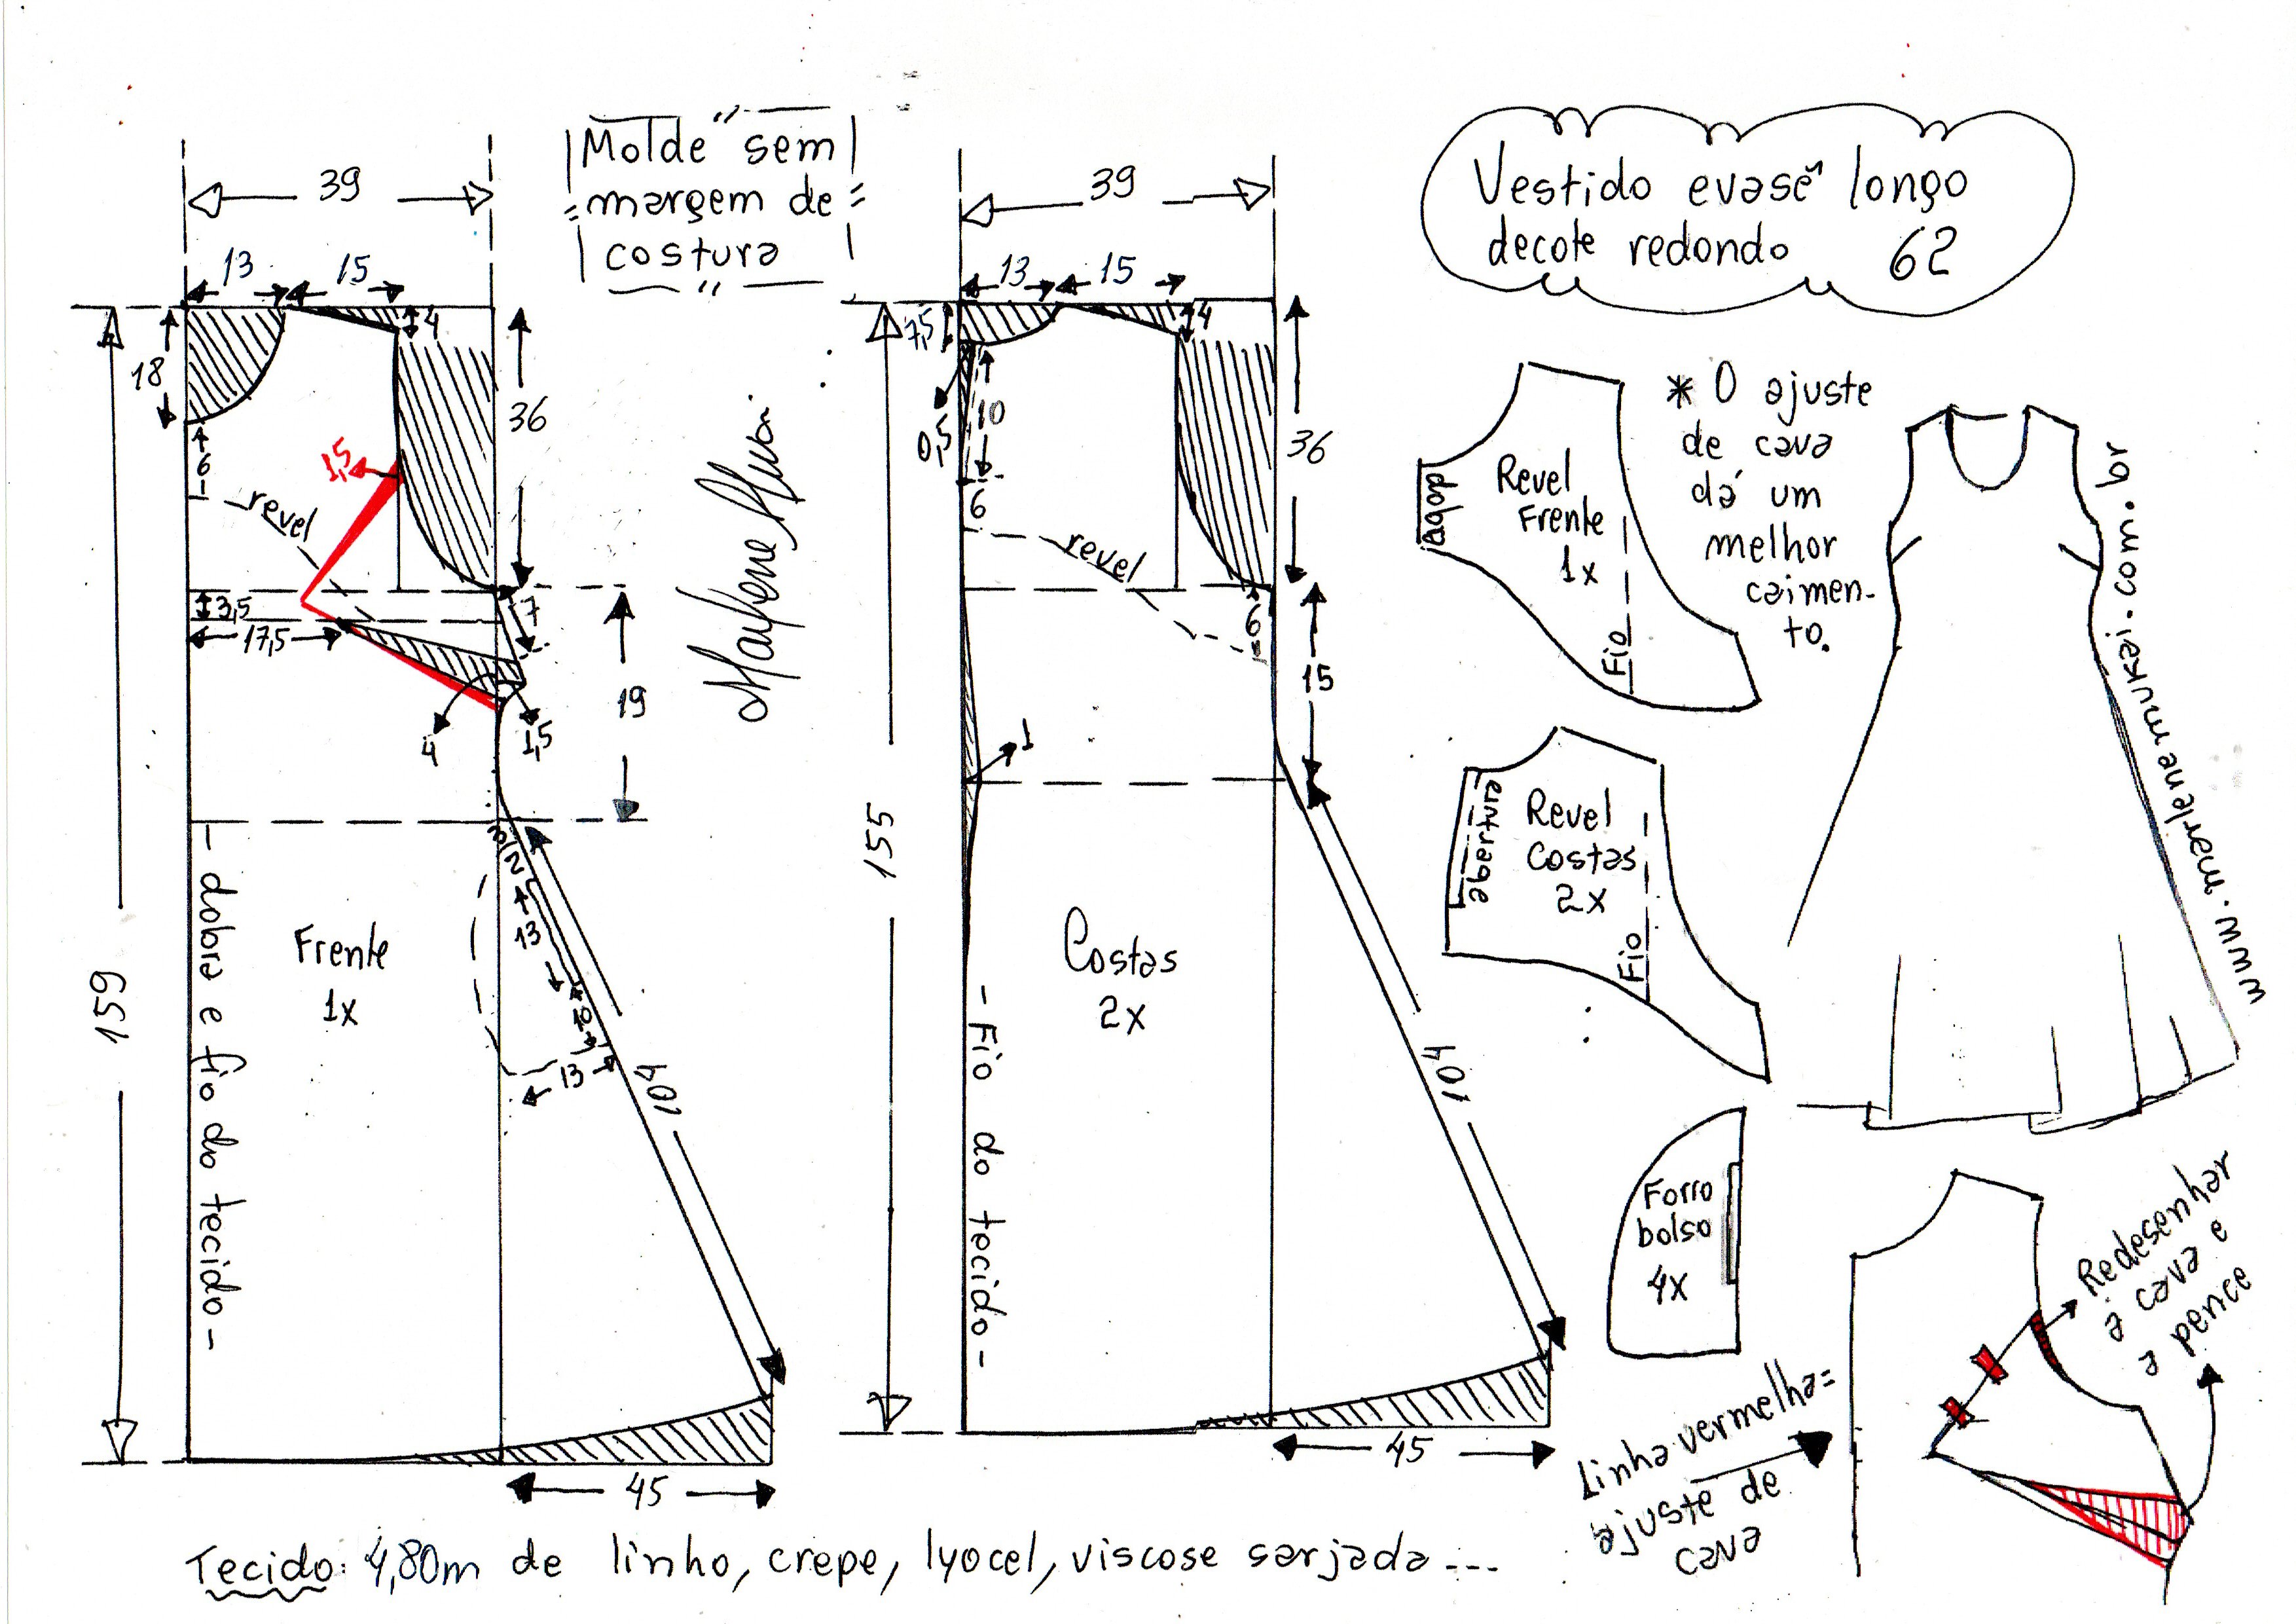 Molde sem
margem de
costura
Vestido evasê longo
decote redondo 62
39
13
15
4
18
36
6
revel
1,5
3,5
17,5
7
4
1,5
19
3
2
13
10
13
104
159
- dobra e fio do tecido -
Frente
1x
45
Marlene Mukai
39
13
15
4
7,5
10
0,5
36
6
revel
6
15
1
155
Costas
2x
- Fio do tecido -
104
45
dobra
Revel
Frente
1x
Fio
* O ajuste
de cava
dá um
melhor
caimen-
to.
abertura
Revel
Costas
2x
Fio
www.marlenemukai.com.br
Forro
bolso
4x
Linha vermelha=
ajuste de
cava
Redesenhar
a cava e
a pence
Tecido: 4,80m de linho, crepe, lyocel, viscose sarjada---